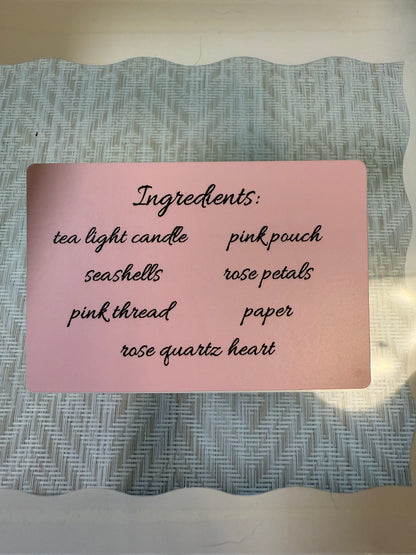 Ingredients:
tea light candle pink pouch
seashells rose petals
pink thread paper
rose quartz heart